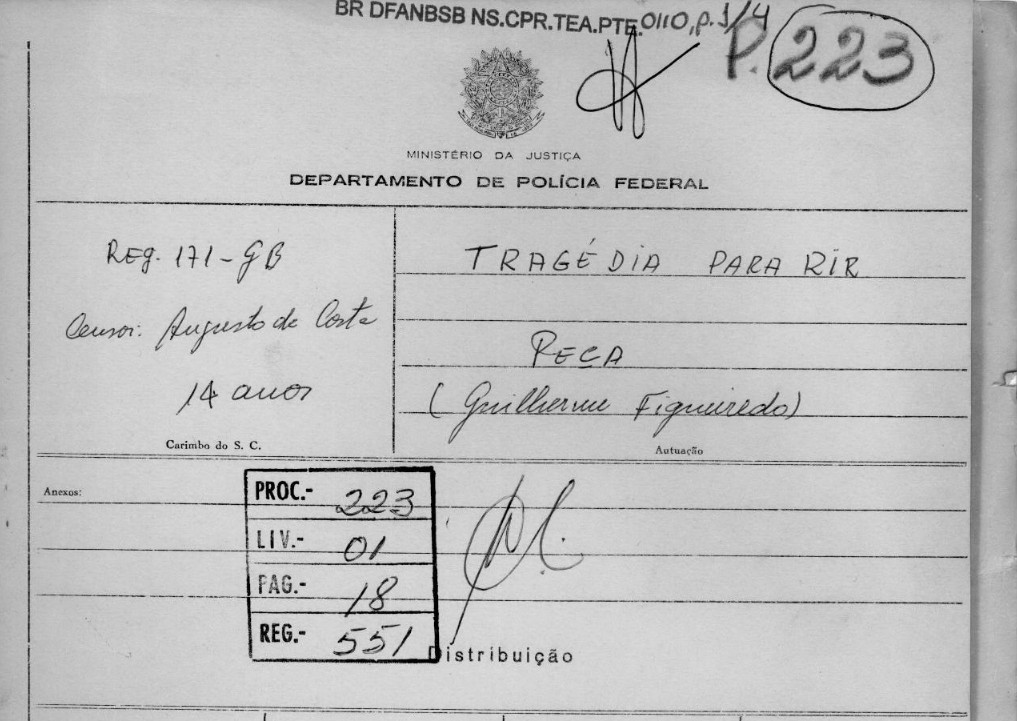 BR DFANBSB NS.CPR.TEA.PTE.0110, p. 1/4
P. 223
MINISTÉRIO DA JUSTIÇA
DEPARTAMENTO DE POLÍCIA FEDERAL
Reg. 171-GB
Censor: Augusto da Costa
14 anos
Carimbo do S. C.
TRAGÉDIA PARA RIR
PEÇA
(Guilherme Figueiredo)
Autuação
Anexos:
PROC.- 223
LIV.- 01
PAG.- 18
REG.- 551
Distribuição